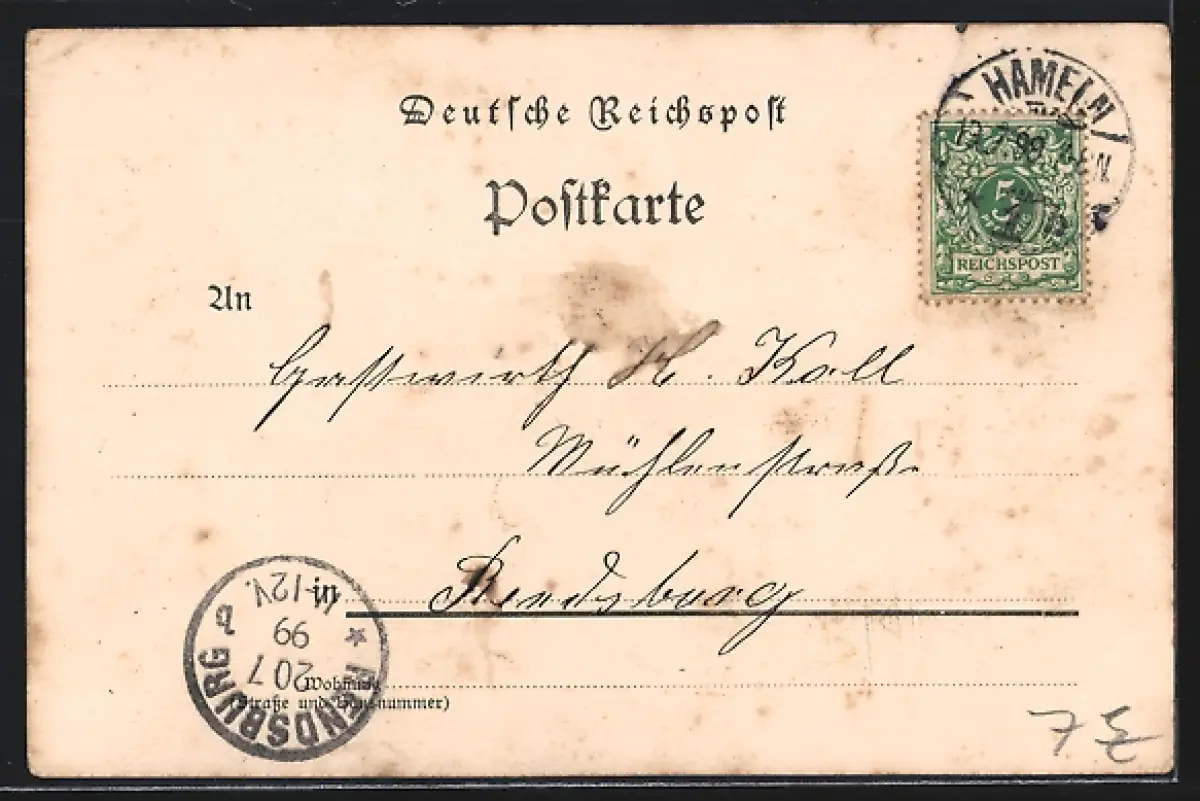 Deutsche Reichspost
Postkarte
HAMELN
19.7.99
5
REICHSPOST
An
Gastwirth H. Koll
Mühlenstraße
in Rendsburg
RENDSBURG b
20 7
99
11-12V.
Wohnung
(Straße und Hausnummer)
7